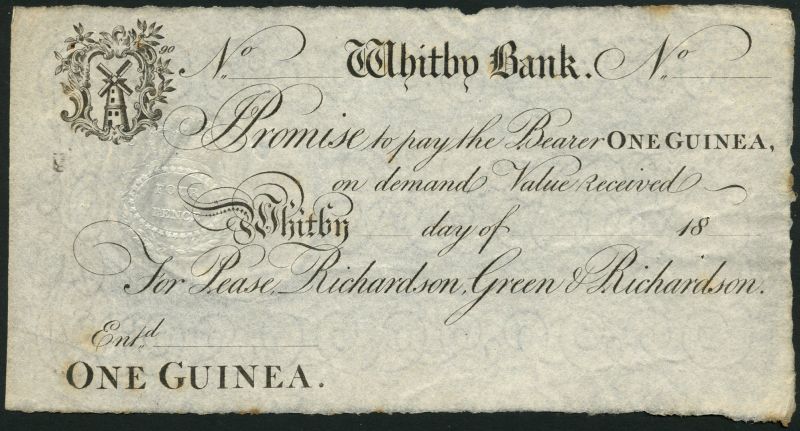 90
No. Whitby Bank. No.
I Promise to pay the Bearer ONE GUINEA,
on demand Value received
Whitby day of 18
For Pease, Richardson, Green & Richardson.
Ent.d
ONE GUINEA.
FO
PENCE